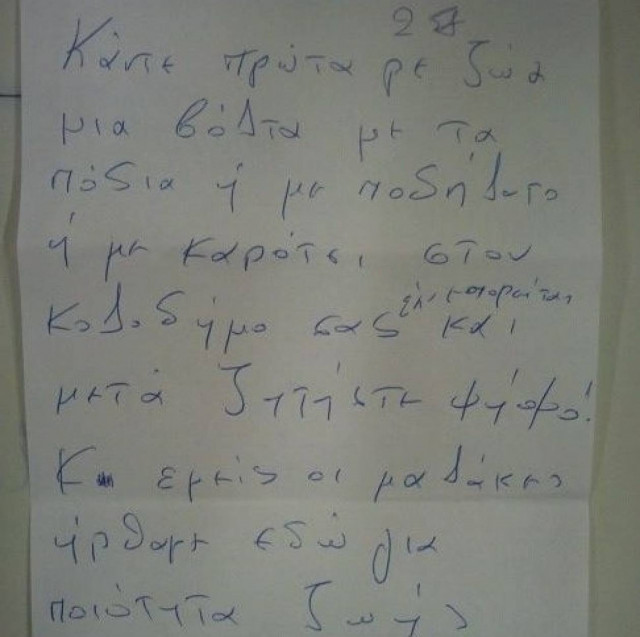 27
Κάντε πρώτα ρε ζώα
μια βόλτα με τα
πόδια ή με ποδήλατο
ή με καρότσι στον
κολοδήμο σας εάν μπορείται και
μετά ζητήστε ψήφο!
Κι εμείς οι μαλάκες
ήρθαμε εδώ για
ποιότητα ζωής